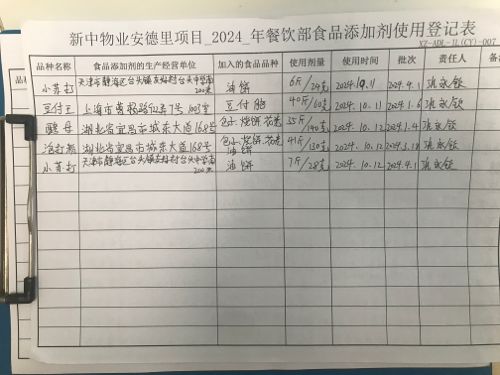 新中物业安德里项目_2024_年餐饮部食品添加剂使用登记表
XZ-ADL-JL(CY)-007
品种名称 食品添加剂的生产经营单位 加入的食品品种 使用剂量 使用时间 批次 责任人 备
小苏打 天津市静海区台头镇友好村台头中学南200米 油饼 6斤/24克 2024.10.11 2024.9.1
豆付王 上海市 7号 豆付脑 40斤/60克 2024.10.11 2024.1.6
酵母 湖北省宜昌市城东大道168号 包子.烧饼.花卷 35斤/140克 2024.10.12 2024.1.4
湖北省宜昌市城东大道168号 包子.烧饼.花卷 油饼 41斤/130克 2024.10.12 2024.3.18
小苏打 天津市静海区台头镇友好村台头中学南200米 油饼 7斤/28克 2024.10.12 2024.9.1